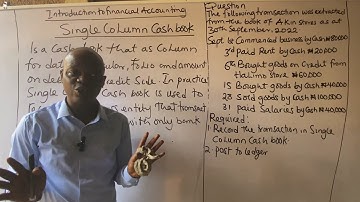 Introduction to financial Accounting
Single Column Cashbook
Is a Cash book that as Column
for da folio and amount
on de Credit Side. In practice
Sing Cash book is used to
entity that transact
with only bank
Question
The following transaction was extracted
from the book of Akin stores as at
30th September, 2022
Sept 1st Commenced business by Cash
3rd paid Rent by Cash ₦20000
6th Bought goods on Credit from
Store ₦60,000
15 Bought goods by Cash
23 Sold goods by Cash ₦100,000
31 Paid Salaries by Cash
Required:
1. Record the transaction in Single
Column Cash book.
2. post to ledger